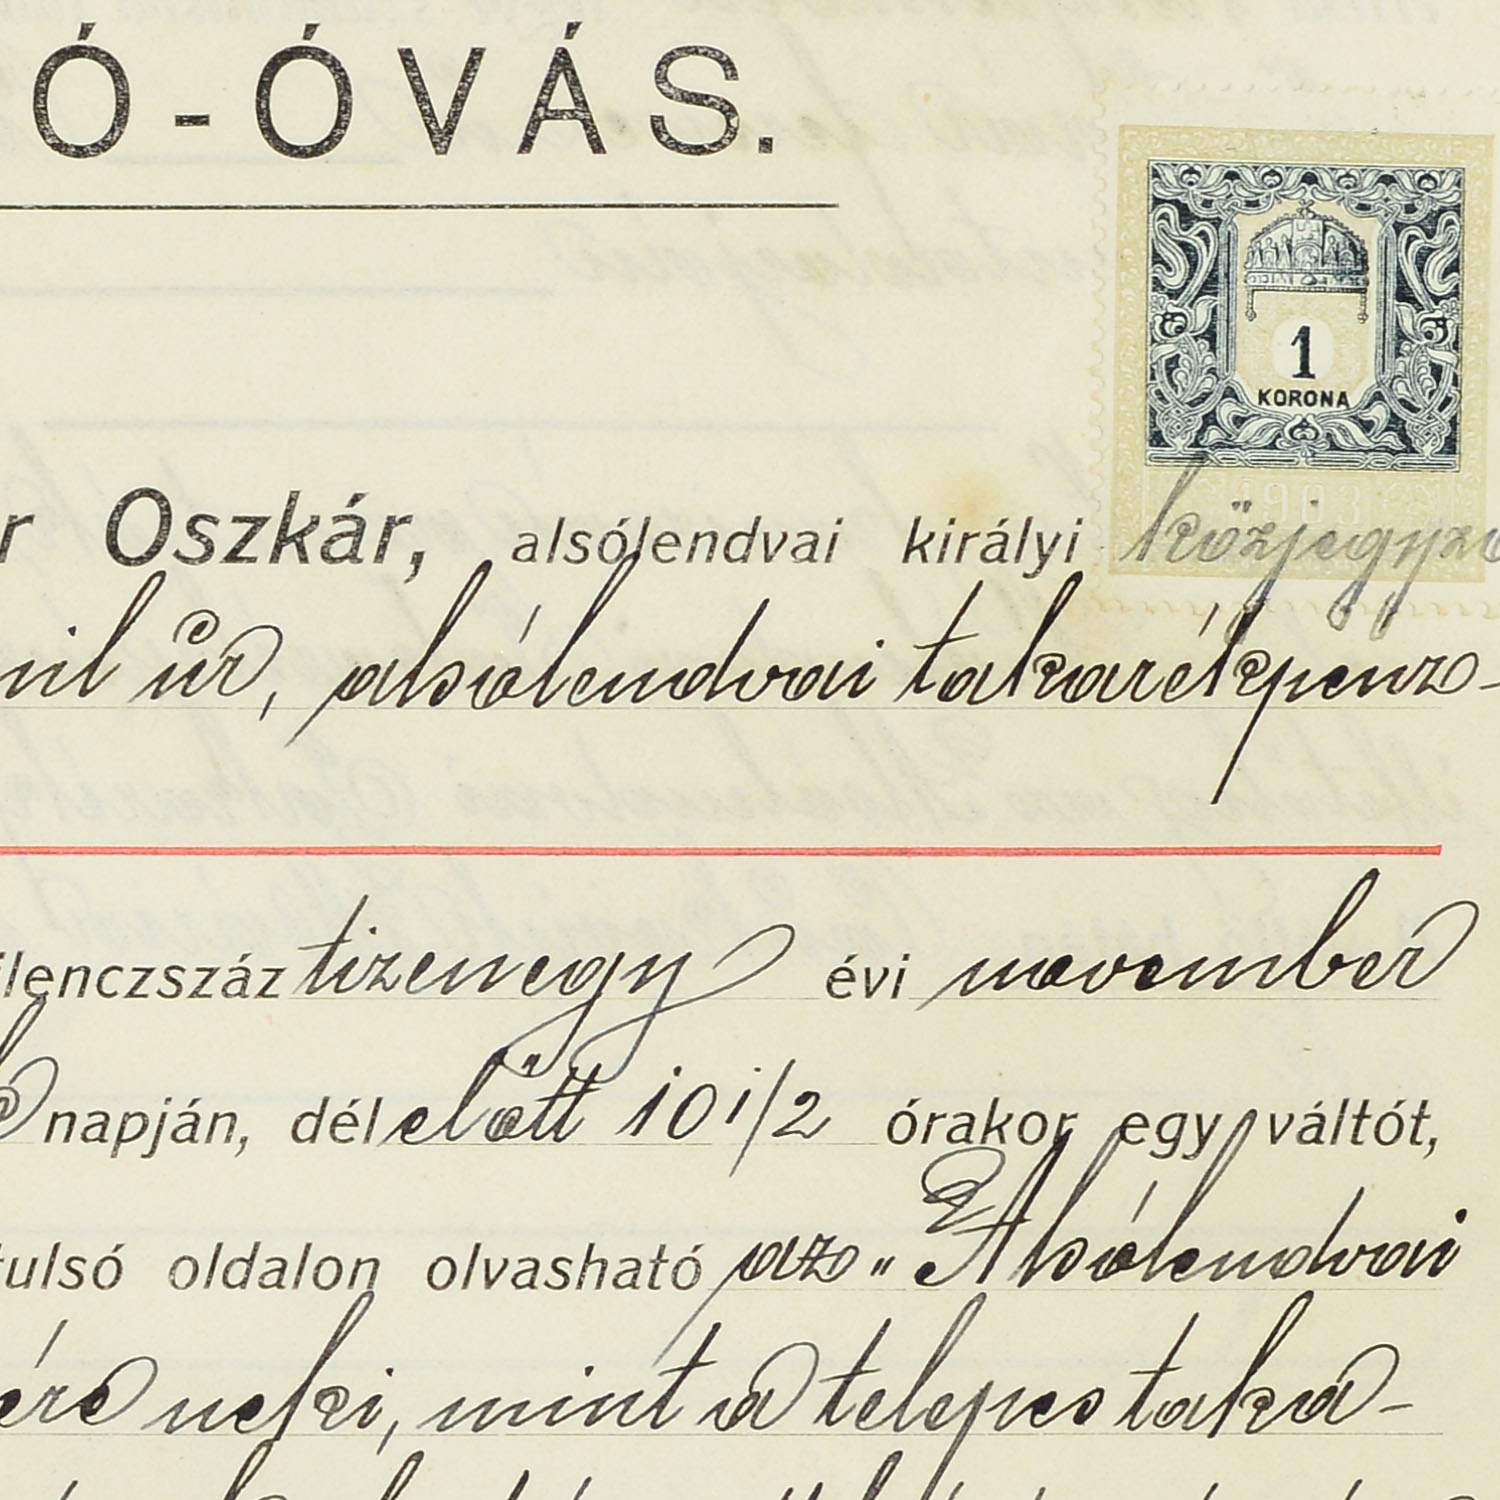 Ó-ÓVÁS.
1
KORONA
1903
r Oszkár, alsólendvai királyi közjegyző
nil úr, alsólendvai takarékpénz-
ilenczszáz tizenegy évi november
napján, délelőtt 10 1/2 órakor egy váltót,
tulsó oldalon olvasható az „Alsólendvai
ére neki, mint a telepes taka-